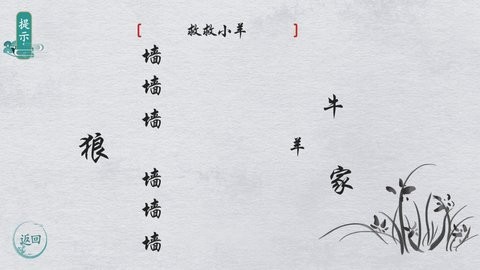 提示
救救小羊
墙
墙
墙
狼
墙
墙
墙
牛
羊
家
返回